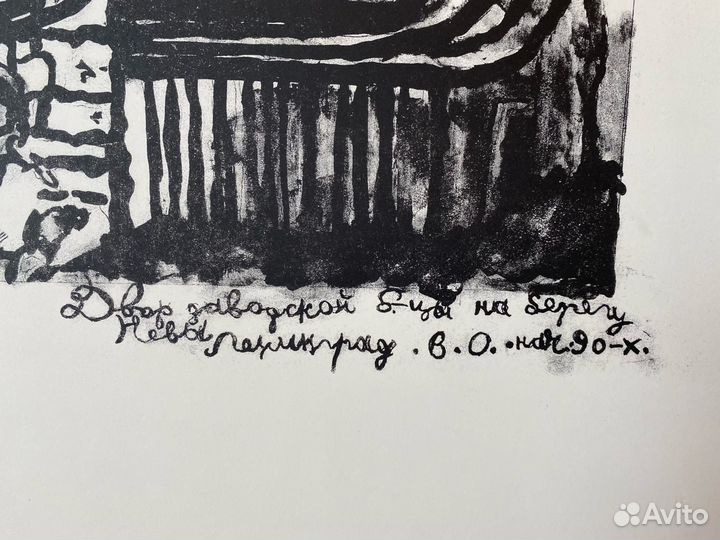 Двор заводской б-цы на берегу
Невы Ленинград . В . О . нач. 90-х.
Avito